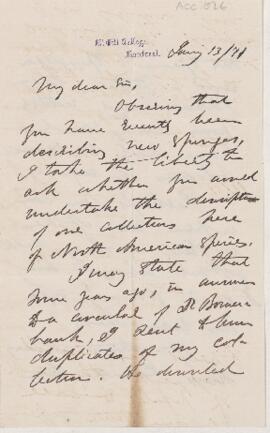 ACC 826
McGill College
Montreal
Jany 13/71
My dear Sir,
Observing that
you have recently been
describing new Sponges,
I take the liberty to
ask whether you would
undertake the description
of our collections here
of North American Species.
I may state that
some years ago, in answer
to a circular of Dr Bower
bank, I sent to him
duplicates of my col
lection. He described